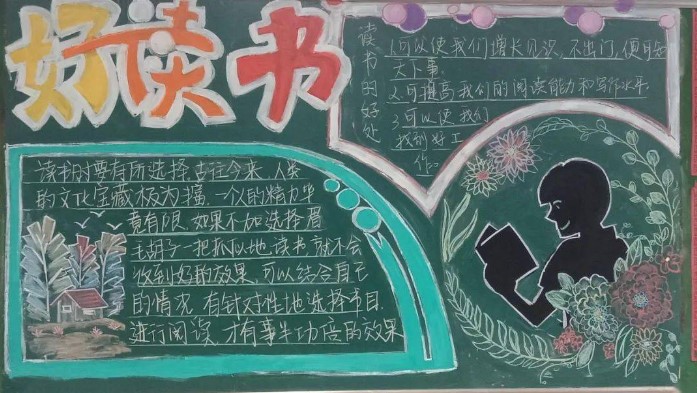 好读书
读书的好处
1.可以使我们增长见识，不出门，便可知
天下事。
2.可提高我们的阅读能力和写作水平。
3.可以使我们
找到好工
作。
读书时要有所选择，古往今来，人类
的文化宝藏极为丰富，一个人的精力毕
竟有限，如果不加选择眉
毛胡子一把抓似地读书，就不会
收到好的效果，可以结合自己
的情况，有针对性地选择书目，
进行阅读，才有事半功倍的效果